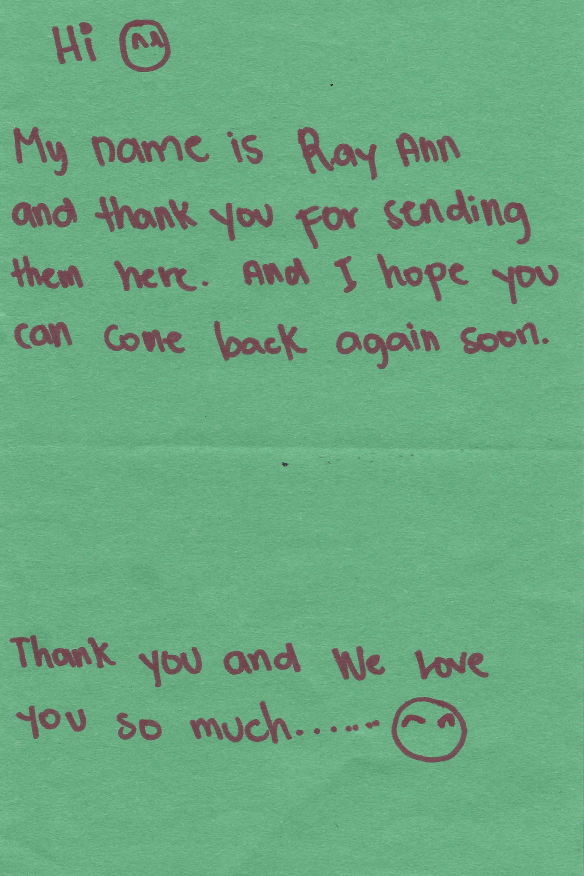 Hi
My name is Ray Ann
and thank you for sending
them here. And I hope you
can come back again soon.
Thank you and We Love
you so much.......